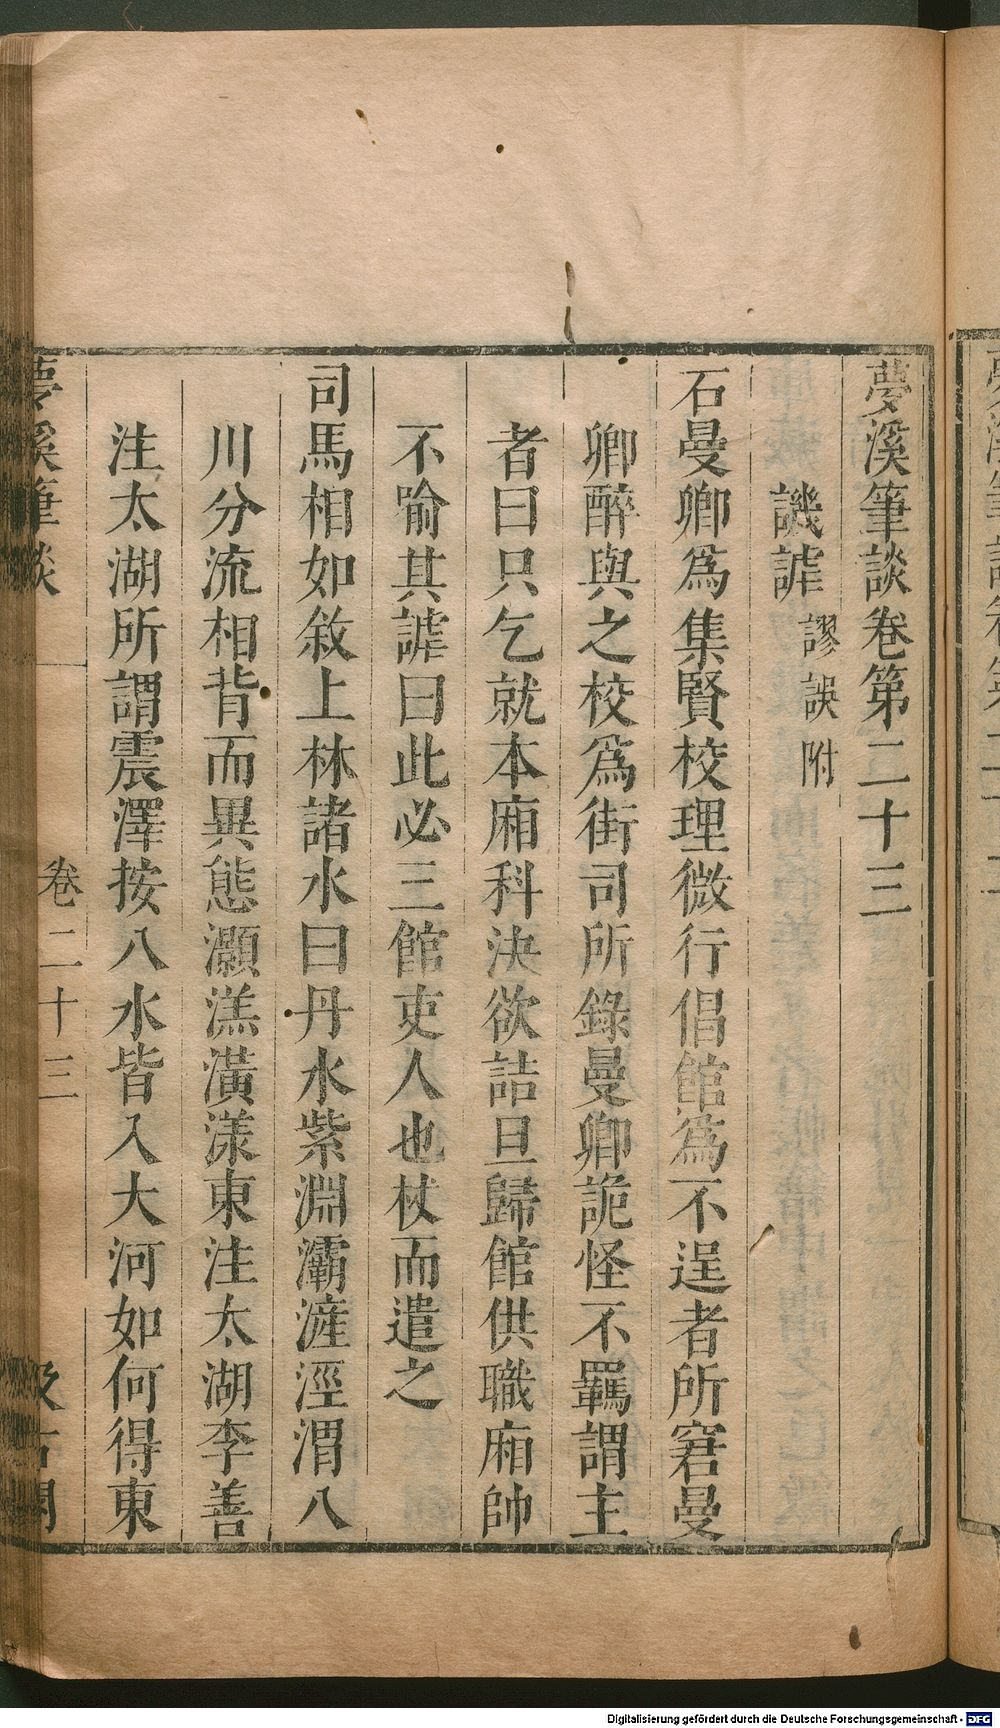 夢溪筆談卷第二十三
譏謔 謬誤附
石曼卿爲集賢校理微行倡館爲不逞者所窘曼
卿醉與之校爲街司所錄曼卿詭怪不羈謂主
者曰只乞就本廂科決欲詰旦歸館供職廂帥
不喻其謔曰此必三館吏人也杖而遣之
司馬相如敘上林諸水曰丹水紫淵灞滻涇渭八
川分流相背而異態灝溔潢漾東注太湖李善
注太湖所謂震澤按八水皆入大河如何得東
夢溪筆談 卷二十三 汲古閣
Digitalisierung gefördert durch die Deutsche Forschungsgemeinschaft - DFG